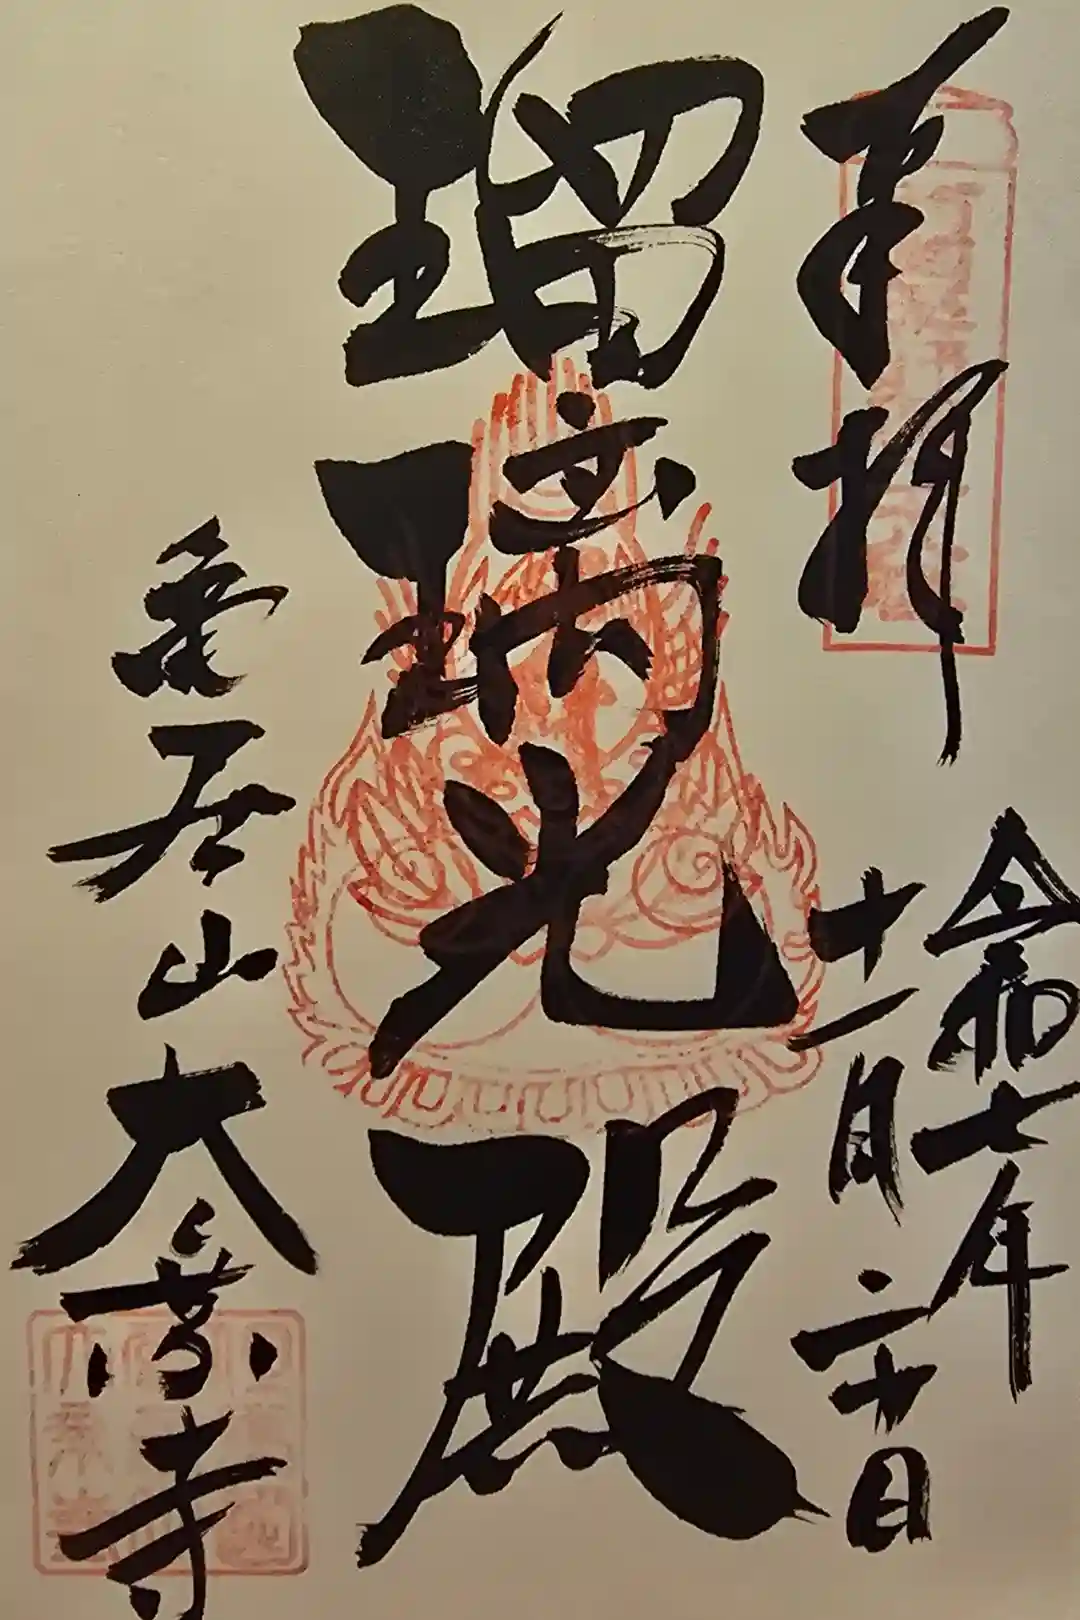 奉拝
令和七年
十一月二十日
瑠璃光殿
亀居山
大乗寺